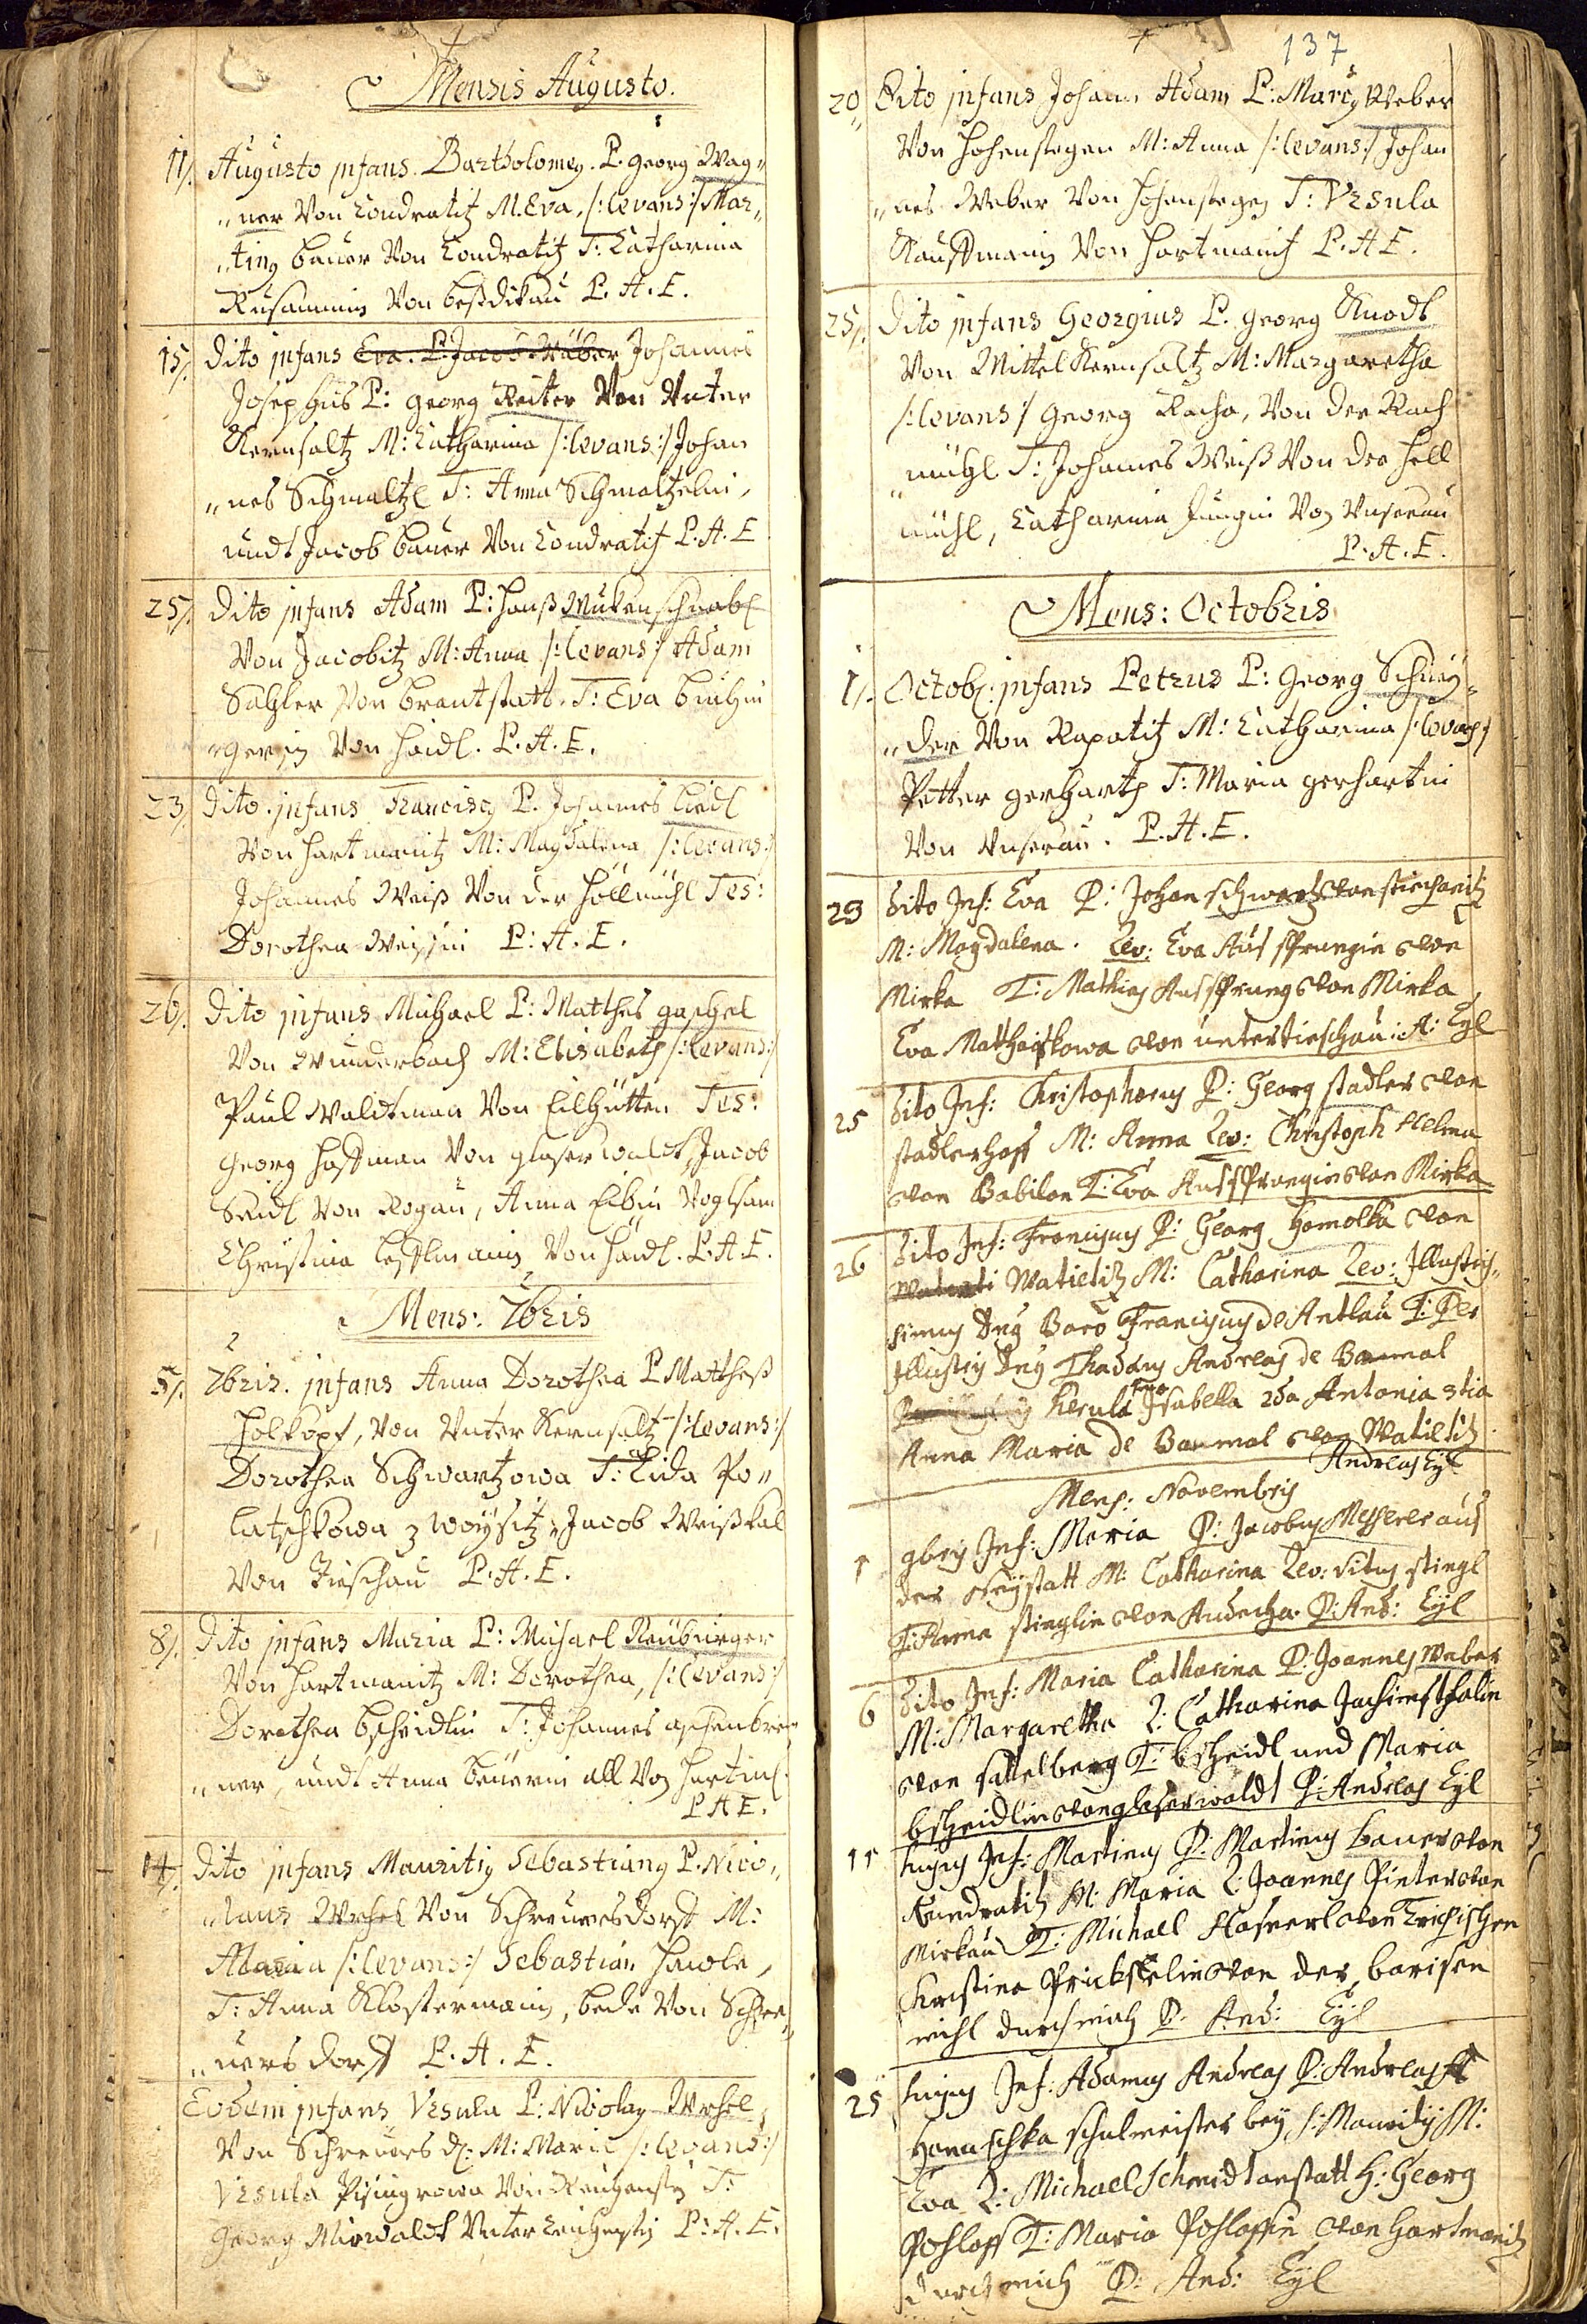 Mensis Augusto.
11/. Augusto infans Bartholomey. P. Georg Wag„
„ner Von Kondratitz M. Eva, /:levans:/ Mar„
„ting Bauer Von Kondratitz T: Catharina
Von P. A. E.
15/. dito infans Eva. P: Jacob Wäber Johannes
Josephus P: Georg Reiter Von Unter
Kernsaltz M: Catharina /:levans:/ Johan
„nes Schmaltzl T: Anna Schmaltzelin,
undt Jacob Bauer Von Kondratitz P. A. E
25/. dito infans Adam P: Hanß Mukenschnabl
Von Jacobitz M: Anna /:levans:/ Adam
Von Brantstatt. T: Eva
gerin Von Haidl. P. A. E.
23/. dito infans Franciscy P. Johannes Liedl
Von Hartmanitz M: Magdalena /:levans:/
Johannes Weiß Von der Höllmühl Tes:
Dorothea Weissin P: A. E.
26/. dito infans Michael P: Matthes gaschel
Von Wunderbach M: Elisabeth /:levans:/
Paul Waldtman Von Eilhütten Tes:
Georg Hoffman Von glaserwaldt, Jacob
Seidl Von Rogau, Anna Voglsam
Christina Von Haidl. P. A. E.
Mens: 7bris
5/. 7bris. infans Anna Dorothea P. Matthes
Holkopf, Von Unter Kernsaltz /:levans:/
Dorothea Schwartzowa T: Lida Po„
latschkowa z Woÿsitz, Jacob Weißkal
Von Zieschau P. A. E.
8/. dito infans Maria P: Michael Neuburger
Von Hartmanitz M: Dorothea, /:levans:/
Dorothea bscheidlin T: Johannes aschenbren
„ner, undt Anna beuerin all Von Hartm:
P A E.
14/. dito infans Mauritiy Sebastiany P. Nico„
„laus Wehel Von Schreuersdorff M:
Maria /:levans:/ Sebastian Hawle,
T: Anna Klostermanin, beide Von Schreu„
„ersdorff P. A. E.
Eodem infans Ursula P: Nicolay Wehel,
Von Schreuers d: M: Maria /:levans:/
Ursula Von T:
Georg Mirwaldt Unter P: A. E.
137
20„ Dito infans Johann Adam P: Marcy Weber
Von Hohenstegen M: Anna /:levans:/ Johan
„nes Weber Von Hohenstegen T: Ursula
Kauffmanin Von Hartmanitz P. A E.
25/. dito infans Georgius P. Georg Knodl
Von Mittel Kernsaltz M: Margaretha
/:levans:/ Georg Racha, Von der Rach
„mühl T: Johannes Weiß Von der Höll
mühl, Catharina Jungin Von Unserau
P. A. E.
Mens: Octobris
1/. Octob: infans Petrus P: Georg Schney„
„der Von Rapatitz M: Catharina /:levans/
Petter gerhartz T: Maria gerhartin
Von Unserau. P. A. E.
23 dito Inf: Eva P: Johan Schwartz von
M: Magdalena. Lev: Eva Aufsprungin von
Mirka T: Mathias Aufsprung von Mirka
Eva von untertieschau: A: Eyl
25 dito Inf: Christophorus P: Georg stadler von
stadlerhoff M: Anna Lev: Christoph Helma
von Babilon T: Eva Aufsprungin von Mirka
26 dito Inf: Franciscus P: Georg Homolka von
Watietitz M: Catharina Lev: Illustris„
simus Dnus Baro Franciscus de Antlau T: Per
Illustris Dnus Thadaus Andreas de Baumal
Isabella Antonia
Anna Maria de Baumal von Watietitz
Andreas Eyl
Mens: Novembris
1 9bris Inf: Maria P: Jacobus Messerer aus
der Neÿstatt M: Catharina Lev: Vitus stingl
T: Anna stinglin von P: And: Eyl
6 dito Inf: Maria Catharina P: Joannes Weber
M: Margaretha L: Catharina Jachimsthalin
von sattelberg T: bscheidl und Maria
bscheidlin von glaserwaldt P: Andreas Eyl
11 hujus Inf: Martinus P: Martinus Bauer von
Kundratitz M: Maria L: Joannes Pinter von
Mirkau T: Michael von
Kristina von der
mihl durch mich P: And: Eyl
25 hujus Inf: Adamus Andreas P: Andreas
Hanuschka schulmeister bey S: Mauritÿ M:
Eva L: Michael Schmidt anstatt H: Georg
Pohloff T: Maria Pohloffin von Hartmanitz
durch mich P: And: Eyl